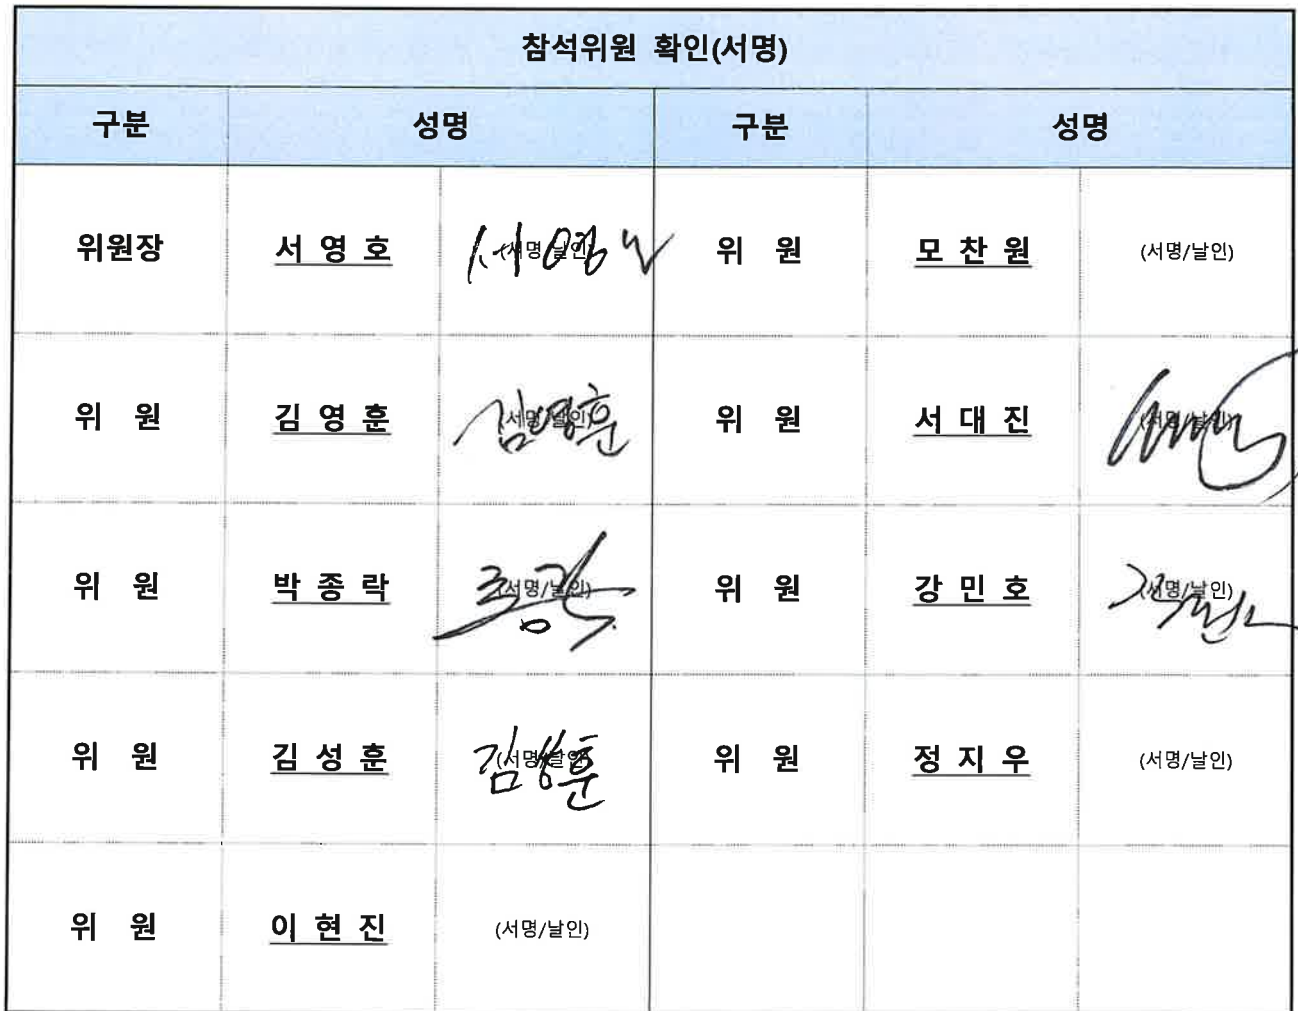 참석위원 확인(서명)
구분 성명 구분 성명
위원장 서 영 호 (서명/날인) 서영호 위 원 모 찬 원 (서명/날인)
위 원 김 영 훈 (서명/날인) 김영훈 위 원 서 대 진 (서명/날인)
위 원 박 종 락 (서명/날인) 위 원 강 민 호 (서명/날인)
위 원 김 성 훈 (서명/날인) 김성훈 위 원 정 지 우 (서명/날인)
위 원 이 현 진 (서명/날인)